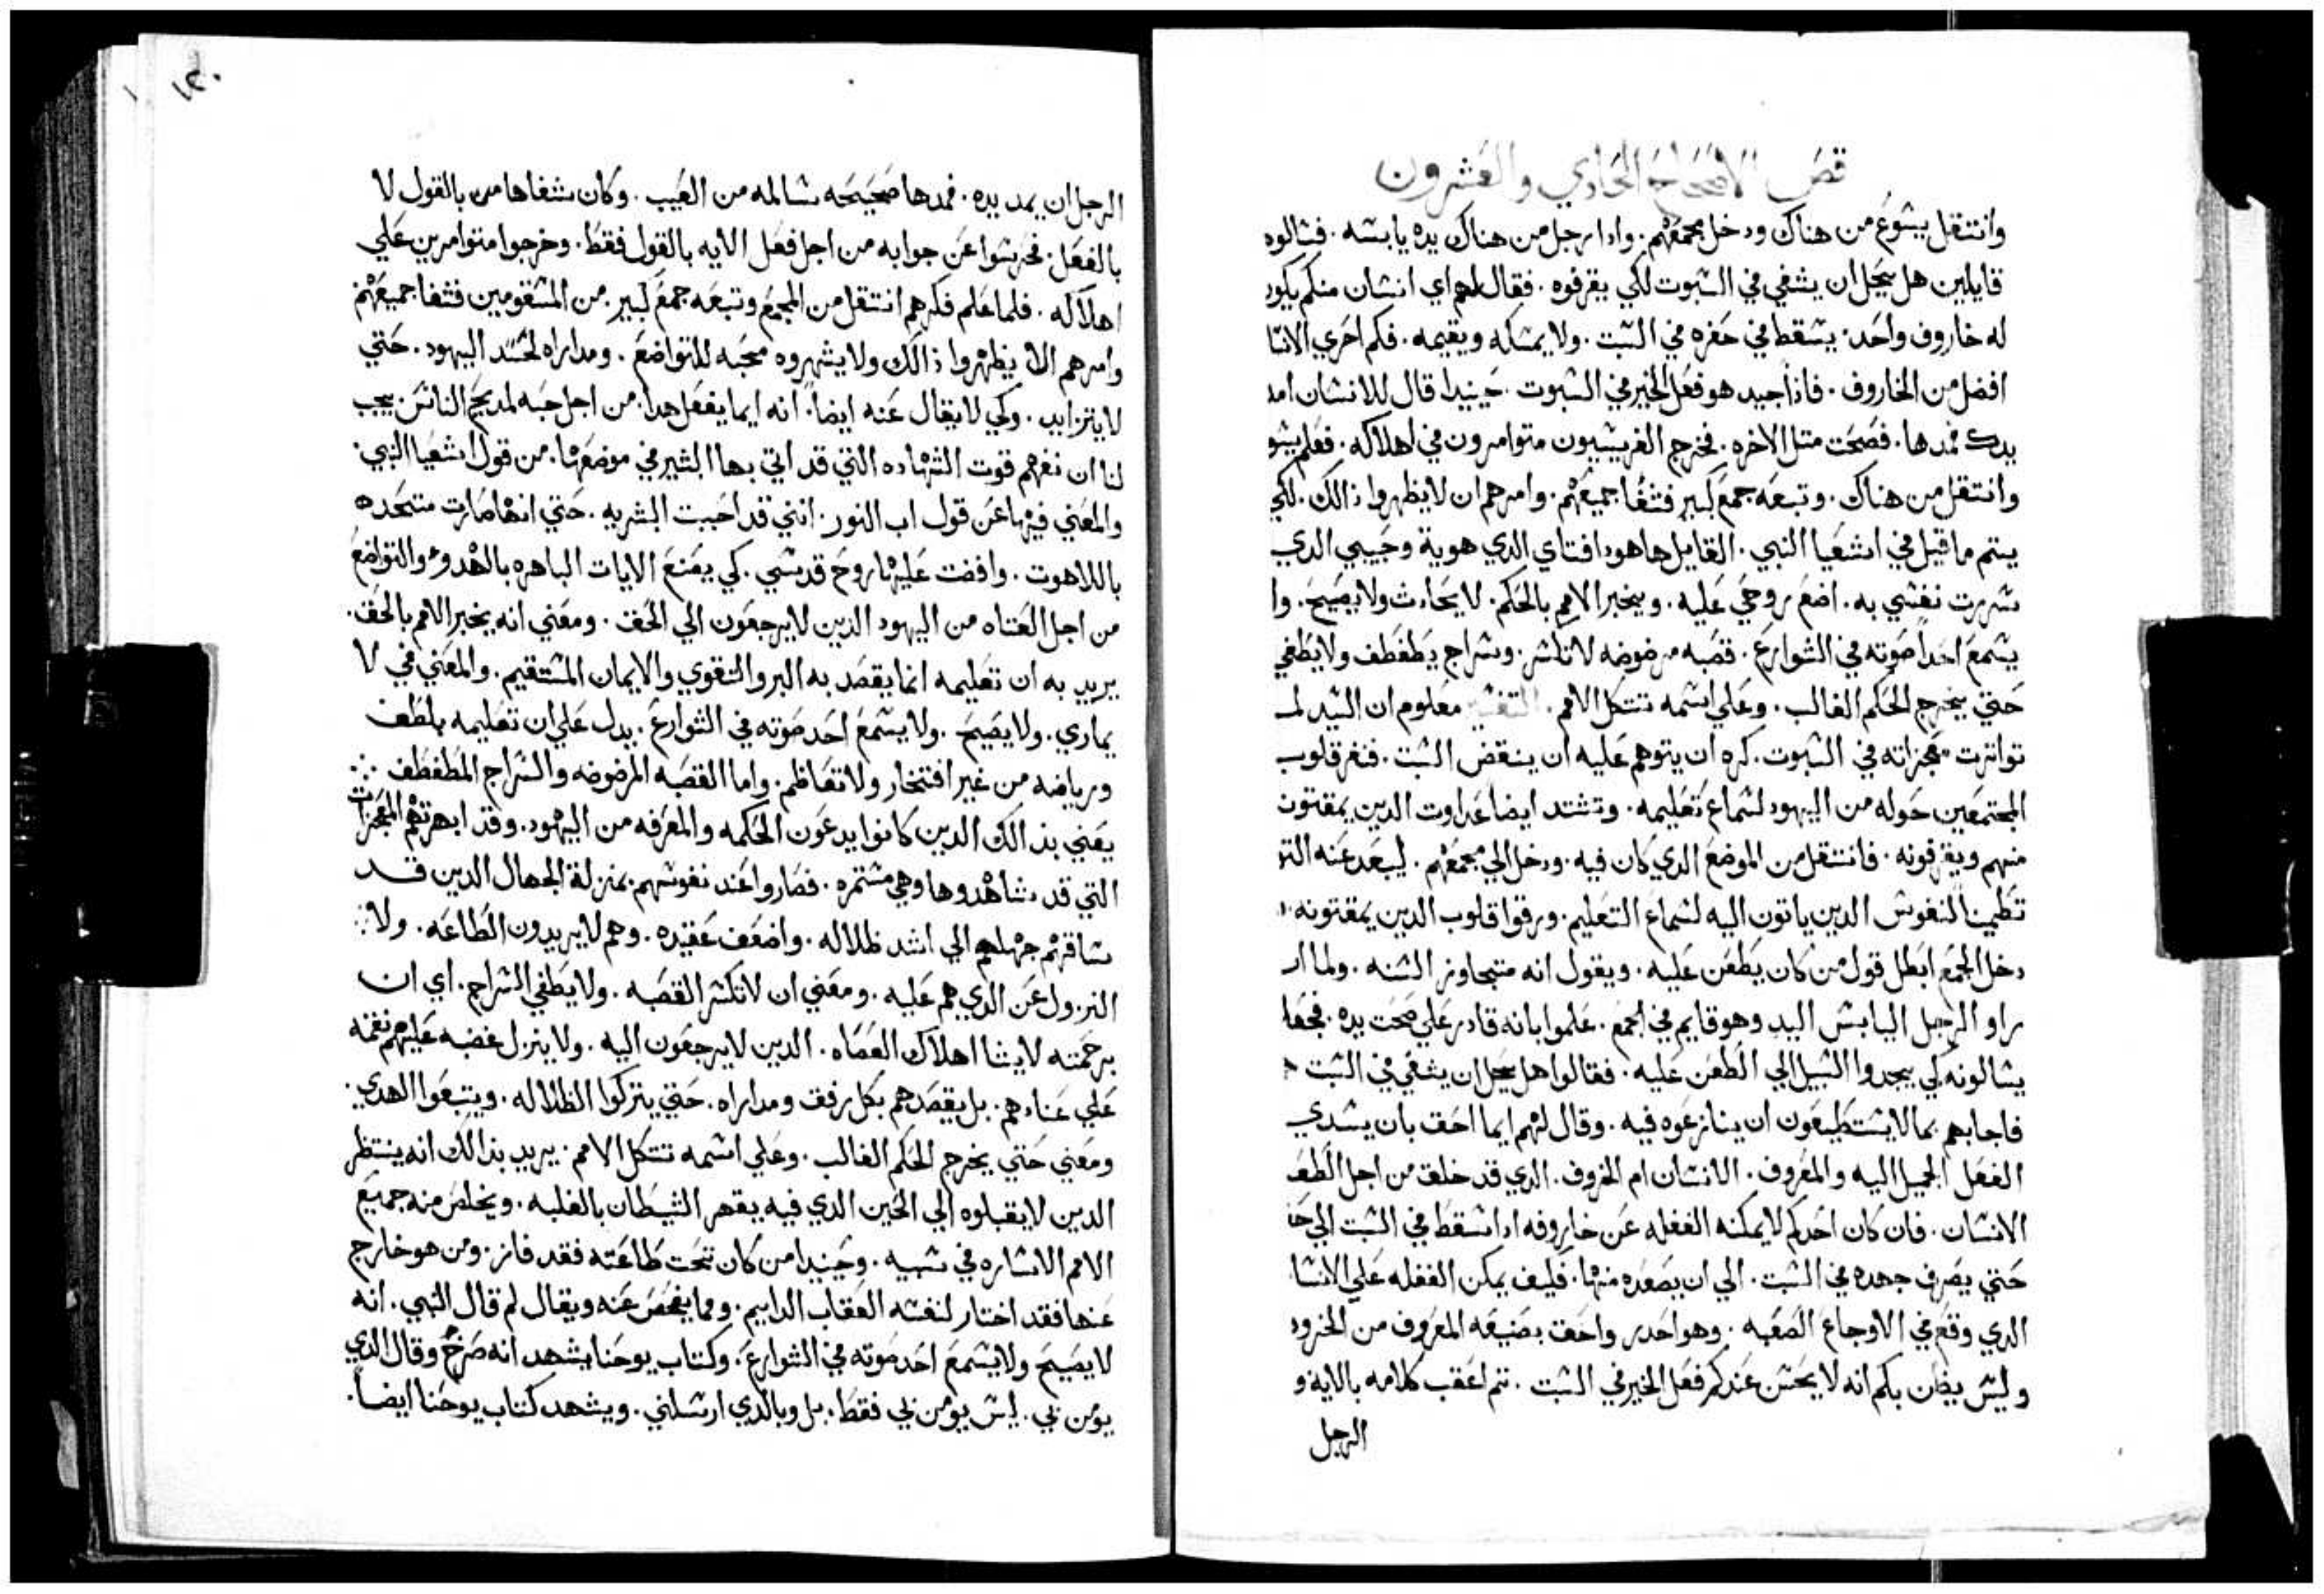 قصَ الاصحاح الحادي والعشرون
وانتقل يشوع من هناك ودخل مجمعهم. وادا رجل من هناك يده يابسه. فسالوه
قايلين هل يحل ان يشفي في السبوت لكي يقرفوه. فقال لهم اي انسان منكم يكون
له خاروف واحد. يسقط في حفره في السبت. ولا يمسكه ويقيمه. فكم احري الانسا
افضل من الخاروف. فاذا جيد هو فعل الخير في السبوت. حينيدا قال للانسان امد
يدك فمدها. فصحت متل الاخره. فخرج الفريسيون متوامرون في اهلاكه. فعلم يشو
وانتقل من هناك. وتبعه جمع كبير فشفا جميعهم. وامرهم ان لا يظهروا ذالك. لكي
يتم ما قيل في اشعيا النبي. القايل ها هودا فتاي الدي هويه وحبيبي الدي
سررت نفسي به. اضع روحي عليه. ويخبر الامم بالحكم. لا يحادث ولا يصيح. وا
يسمع احداً صوته في الشوارع. قصبه مرضوضه لا تكسر. وسراج يطفطف ولا يطفي
حتي يخرج الحكم الغالب. وعلي اسمه تتكل الامم. التفسير معلوم ان السيد لما
تواترت معجزاته في السبوت. كره ان يتوهم عليه ان ينقض السبت. فنفر قلوب
المجتمعين حوله من اليهود لسماع تعليمه. وتشتد ايضا عداوت الدين يمقتون
منهم ويقرفونه. فانتقل من الموضع الدي كان فيه. ودخل الي مجمعهم. ليبعد عنه
تطمين النفوس الدين ياتون اليه لسماع التعليم. ورقوا قلوب الدين يمقتونه
دخل المجمع ابطل قول من كان يطعن عليه. ويقول انه متجاوز السنه. ولما ان
راو الرجل اليابس اليد وهو قايم في المجمع. علموا بانه قادر علي صحت يده. فجعلـ
يسالونه كي يجدوا السبيل الي الطعن عليه. فقالوا هل يحل ان يشفي في السبت
فاجابهم بما لا يستطيعون ان ينازعوه فيه. وقال لهم ايما احق بان يسدي
الفعل الجميل اليه والمعروف. الانسان ام الخروف. الدي قد خلق من اجل الطف
الانسان. فان كان احدكم لا يمكنه الغفله عن خاروفه ادا سقط في السبت الي حفـ
حتي يصرف جهده في السبت. الي ان يصعده منها. فكيف يمكن الغفله علي الانسا
الدي وقع في الاوجاع الصعبه. وهو احدر واحق بصنيعه المعروف من الخروف
وليس يظن بكم انه لا يحسن عندكم فعل الخير في السبت. تم اعقب كلامه بالايه و
الرجل
١٢٠
الرجل ان يمد يده. فمدها صحيحه سالمه من العيب. وكان شفاها من بالقول لا
بالفعل. فخرسوا عن جوابه من اجل فعل الايه بالقول فقط. وخرجوا متوامرين علي
اهلاكه. فلما علم فكرهم انتقل من المجمع وتبعه جمع كبير. من المسقومين فشفا جميعهم
وامرهم الا يظهروا ذالك ولا يشهروه محبه للتواضع. ومداراه لحسد اليهود. حتي
لا يتزايد. وكي لا يقال عنه ايضاً. انه ايما يفعل هدا. من اجل حبه لمديح الناس. يجب
لنا ان نفهم قوت الشهاده التي قد اتي بها البشير في موضعها. من قول اشعيا النبي.
والمعني فيها عن قول اب النور. انني قد احببت البشريه. حتي انها صارت متحده
باللاهوت. وافضت عليها روح قدسي. كي يصنع الايات الباهره بالهدوء والتواضع
من اجل العتاه من اليهود الدين لا يرجعون الي الحق. ومعني انه يخبر الامم بالحق.
يريد به ان تعليمه انما يقصد به البر والتقوي والايمان المستقيم. والمعني في لا
يماري. ولا يصيح. ولا يسمع احد صوته في الشوارع. يدل علي ان تعليمه بلطف
ورياضه من غير افتخار ولا تعاظم. واما القصبه المرضوضه والسراج المطفطف
يعني بذالك الدين كانوا يدعون الحكمه والمعرفه من اليهود. وقد ابهرتهم المعجزات
التي قد شاهدوها وهي مستمره. فصاروا عند نفوسهم بمنزلة الجهال الدين قد
ساقهم جهلهم الي اشد ظلاله. واضعف عقيده. وهم لا يريدون الطاعه. ولا
النزول عن الدي هم عليه. ومعني ان لا تكسر القصبه. ولا يطفي السراج. اي ان
برحمته لا يشا اهلاك العصاه. الدين لا يرجعون اليه. ولا ينزل غضبه عليهم نقمه
علي عنادهم. بل يقصدهم بكل رفق ومداراه. حتي يتركوا الظلاله. ويتبعوا الهدي.
ومعني حتي يخرج الحكم الغالب. وعلي اسمه تتكل الامم. يريد بذالك انه ينتظر
الدين لا يقبلوه الي الحين الدي فيه يقهر الشيطان بالغلبه. ويخلص منه جميع
الامم الاساره في سبيه. وحينيدا من كان تحت طاعته فقد فاز. ومن هو خارج
عنها فقد اختار لنفسه العقاب الدايم. ومما يفحص عنه ويقال لم قال النبي. انه
لا يصيح ولا يسمع احد صوته في الشوارع. وكتاب يوحنا يشهد انه صرخ وقال الدي
يومن بي. ليس يومن بي فقط. بل وبالدي ارسلني. ويشهد كتاب يوحنا ايضاً.